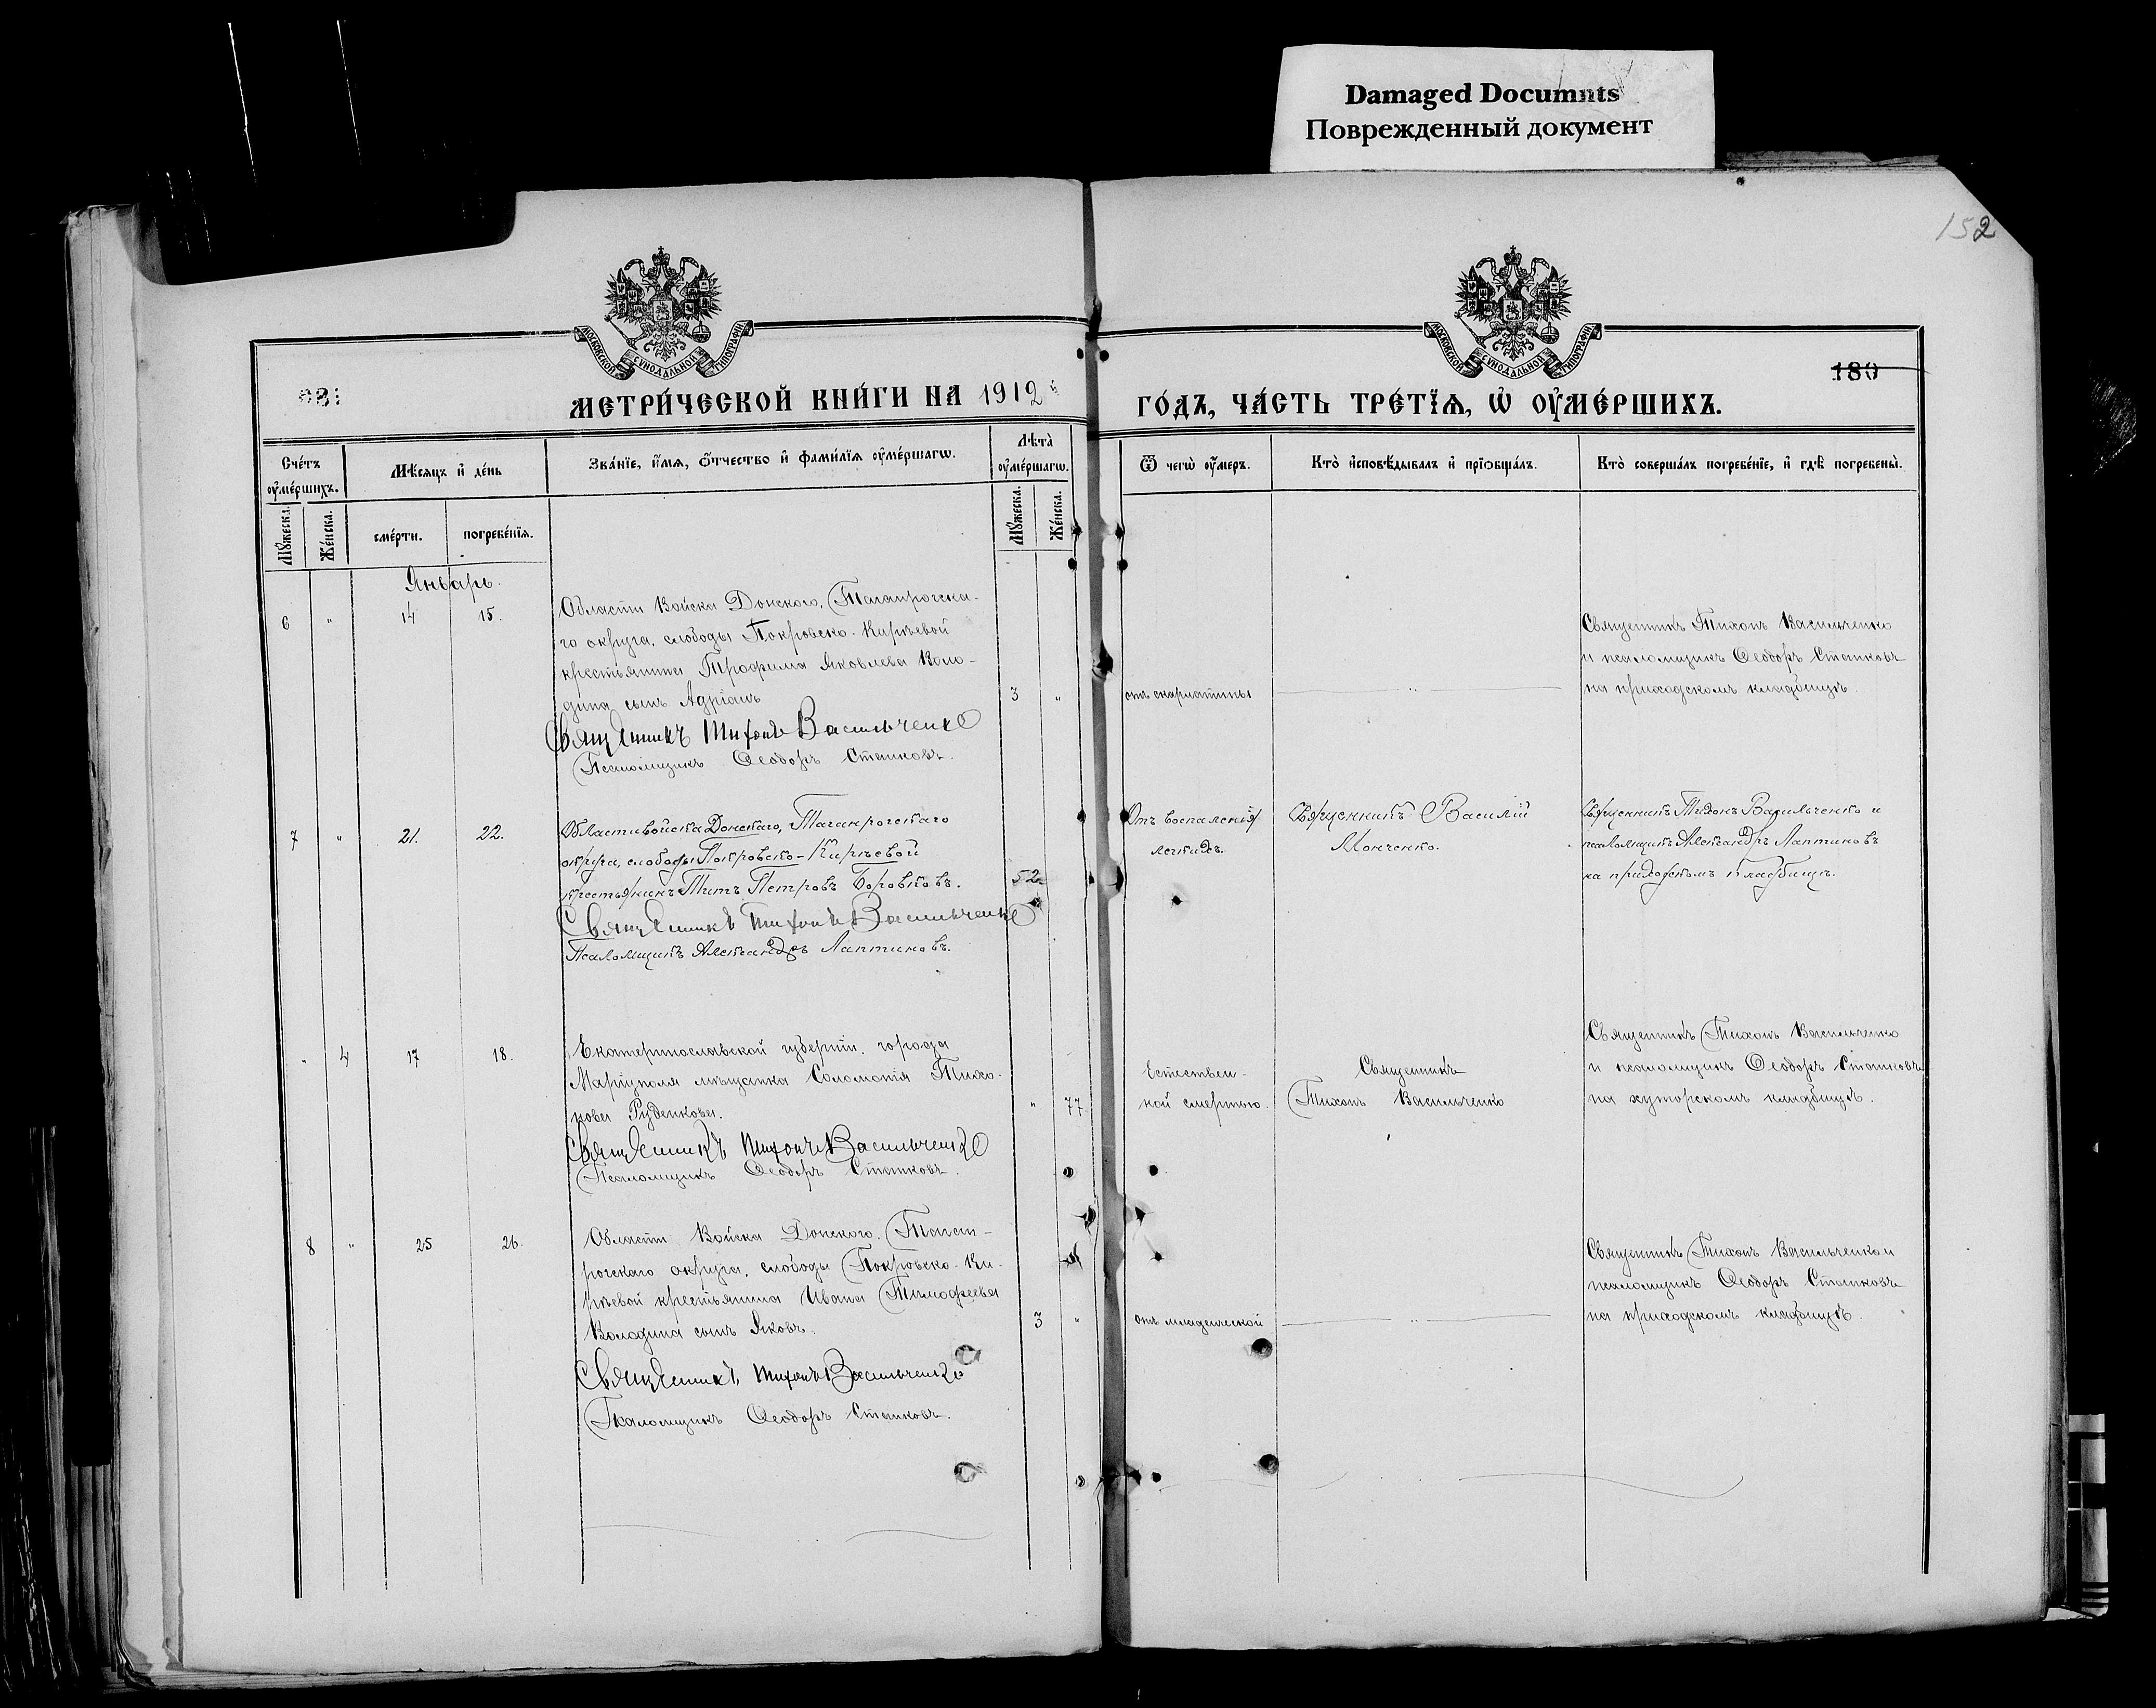 Damaged Documnts
Поврежденный документ
152
МОСКОВСКОЙ СѴНОДАЛЬНОЙ ТИПОГРАФІИ
МОСКОВСКОЙ СѴНОДАЛЬНОЙ ТИПОГРАФІИ
180
МЕТРИ́ЧЕСКОЙ КНИ́ГИ НА 1912
ГО́ДЪ, ЧА́СТЬ ТРЕ́ТЇѦ, Ѡ҆ ОУ҆МЕ́РШИХЪ.
Сче́тъ оу҆ме́ршихъ.
Мѣ́сяцъ и҆ де́нь
Зва́нїе, и҆́мя, ѻ҆́тчество и҆ фами́лїя оу҆ме́ршагѡ.
Лѣта̀ оу҆ме́ршагѡ.
Ѿ чегѡ̀ оу҆́меръ.
Кто̀ и҆сповѣ́дывалъ и҆ прїѻбща́лъ.
Кто̀ соверша́лъ погребе́нїе, и҆ гдѣ̀ погребены̀.
Мꙋ́жеска.
Же́нска.
сме́рти.
погребе́нїя.
Мꙋ́жеска.
Же́нска.
Январь.
6 " 14 15. Области Войска Донского, Таганрогска-
го округа, слободы Покровско-Киръевой
крестьянина Трофима Яковлева Воло-
дина сынъ Адріанъ 3 "
Священникъ Тихонъ Васильченко
Псаломщикъ Ѳеодоръ Статковъ.
отъ скарлатины
"
Священникъ Тихонъ Васильченко
и псаломщикъ Ѳеодоръ Статковъ
на приходскомъ кладбищѣ.
7 " 21. 22. Области войска Донскаго, Таганрогскаго
округа, слободы Покровско-Киръевой
крестьянинъ Титъ Петровъ Боровковъ. 52
Священникъ Тихонъ Васильченко
Псаломщикъ Александръ Лаптиновъ.
Отъ воспаленія
легкихъ.
Священникъ Василій
Монченко.
Священникъ Тихонъ Васильченко и
псаломщикъ Александръ Лаптиновъ
на приходскомъ кладбищѣ.
" 4 17 18. Екатеринославской губерніи, города
Маріуполя мѣщанка Соломонія Тихо-
нова Руденкова. " 77
Священникъ Тихонъ Васильченко
Псаломщикъ Ѳеодоръ Статковъ.
Естествен-
ной смертью.
Священникъ
Тихонъ Васильченко
Священникъ Тихонъ Васильченко
и псаломщикъ Ѳеодоръ Статковъ
на хуторскомъ кладбищѣ.
8 " 25 26. Области Войска Донского, Таган-
рогскаго округа, слободы Покровско-Ки-
ръевой крестьянина Ивана Тимофеева
Володина сынъ Яковъ. 3 "
Священникъ Тихонъ Васильченко
Псаломщикъ Ѳеодоръ Статковъ.
отъ младенческой
"
Священникъ Тихонъ Васильченко и
псаломщикъ Ѳеодоръ Статковъ
на приходскомъ кладбищѣ.